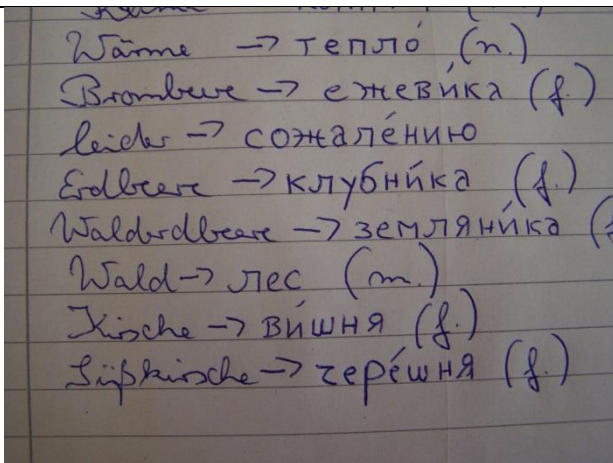 Wärme → тепло́ (n.)
Brombeere → ежеви́ка (f.)
leider → сожале́нию
Erdbeere → клубни́ка (f.)
Walderdbeere → земляни́ка (f
Wald → лес (m.)
Kirsche → ви́шня (f.)
Süßkirsche → чере́шня (f.)